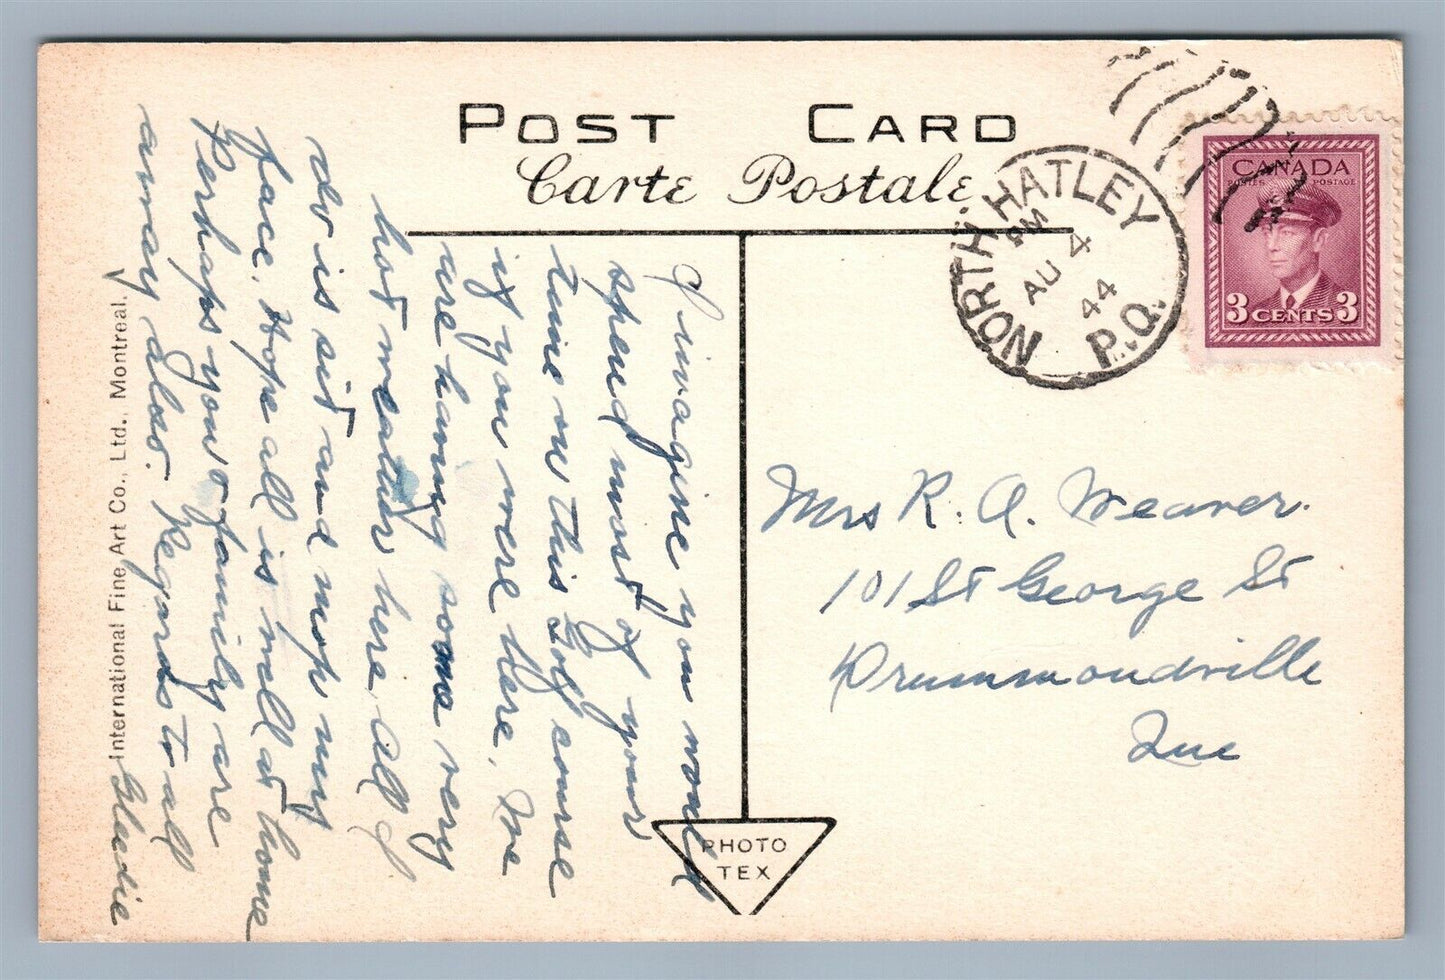 POST CARD
Carte Postale
NORTH HATLEY
PM
AU 4
44
P.Q.
CANADA
POSTES POSTAGE
3 CENTS 3
I imagine you would
spend most of your
time on this golf course
if you were here. We
are having some very
hot weather here. All I
do is sit and mop my
face. Hope all is well at home
Perhaps you & family are
away also. Regards to all
Gladie
Mrs R. A. Weaver.
101 St George St
Drummondville
Que
PHOTO
TEX
International Fine Art Co., Ltd., Montreal.